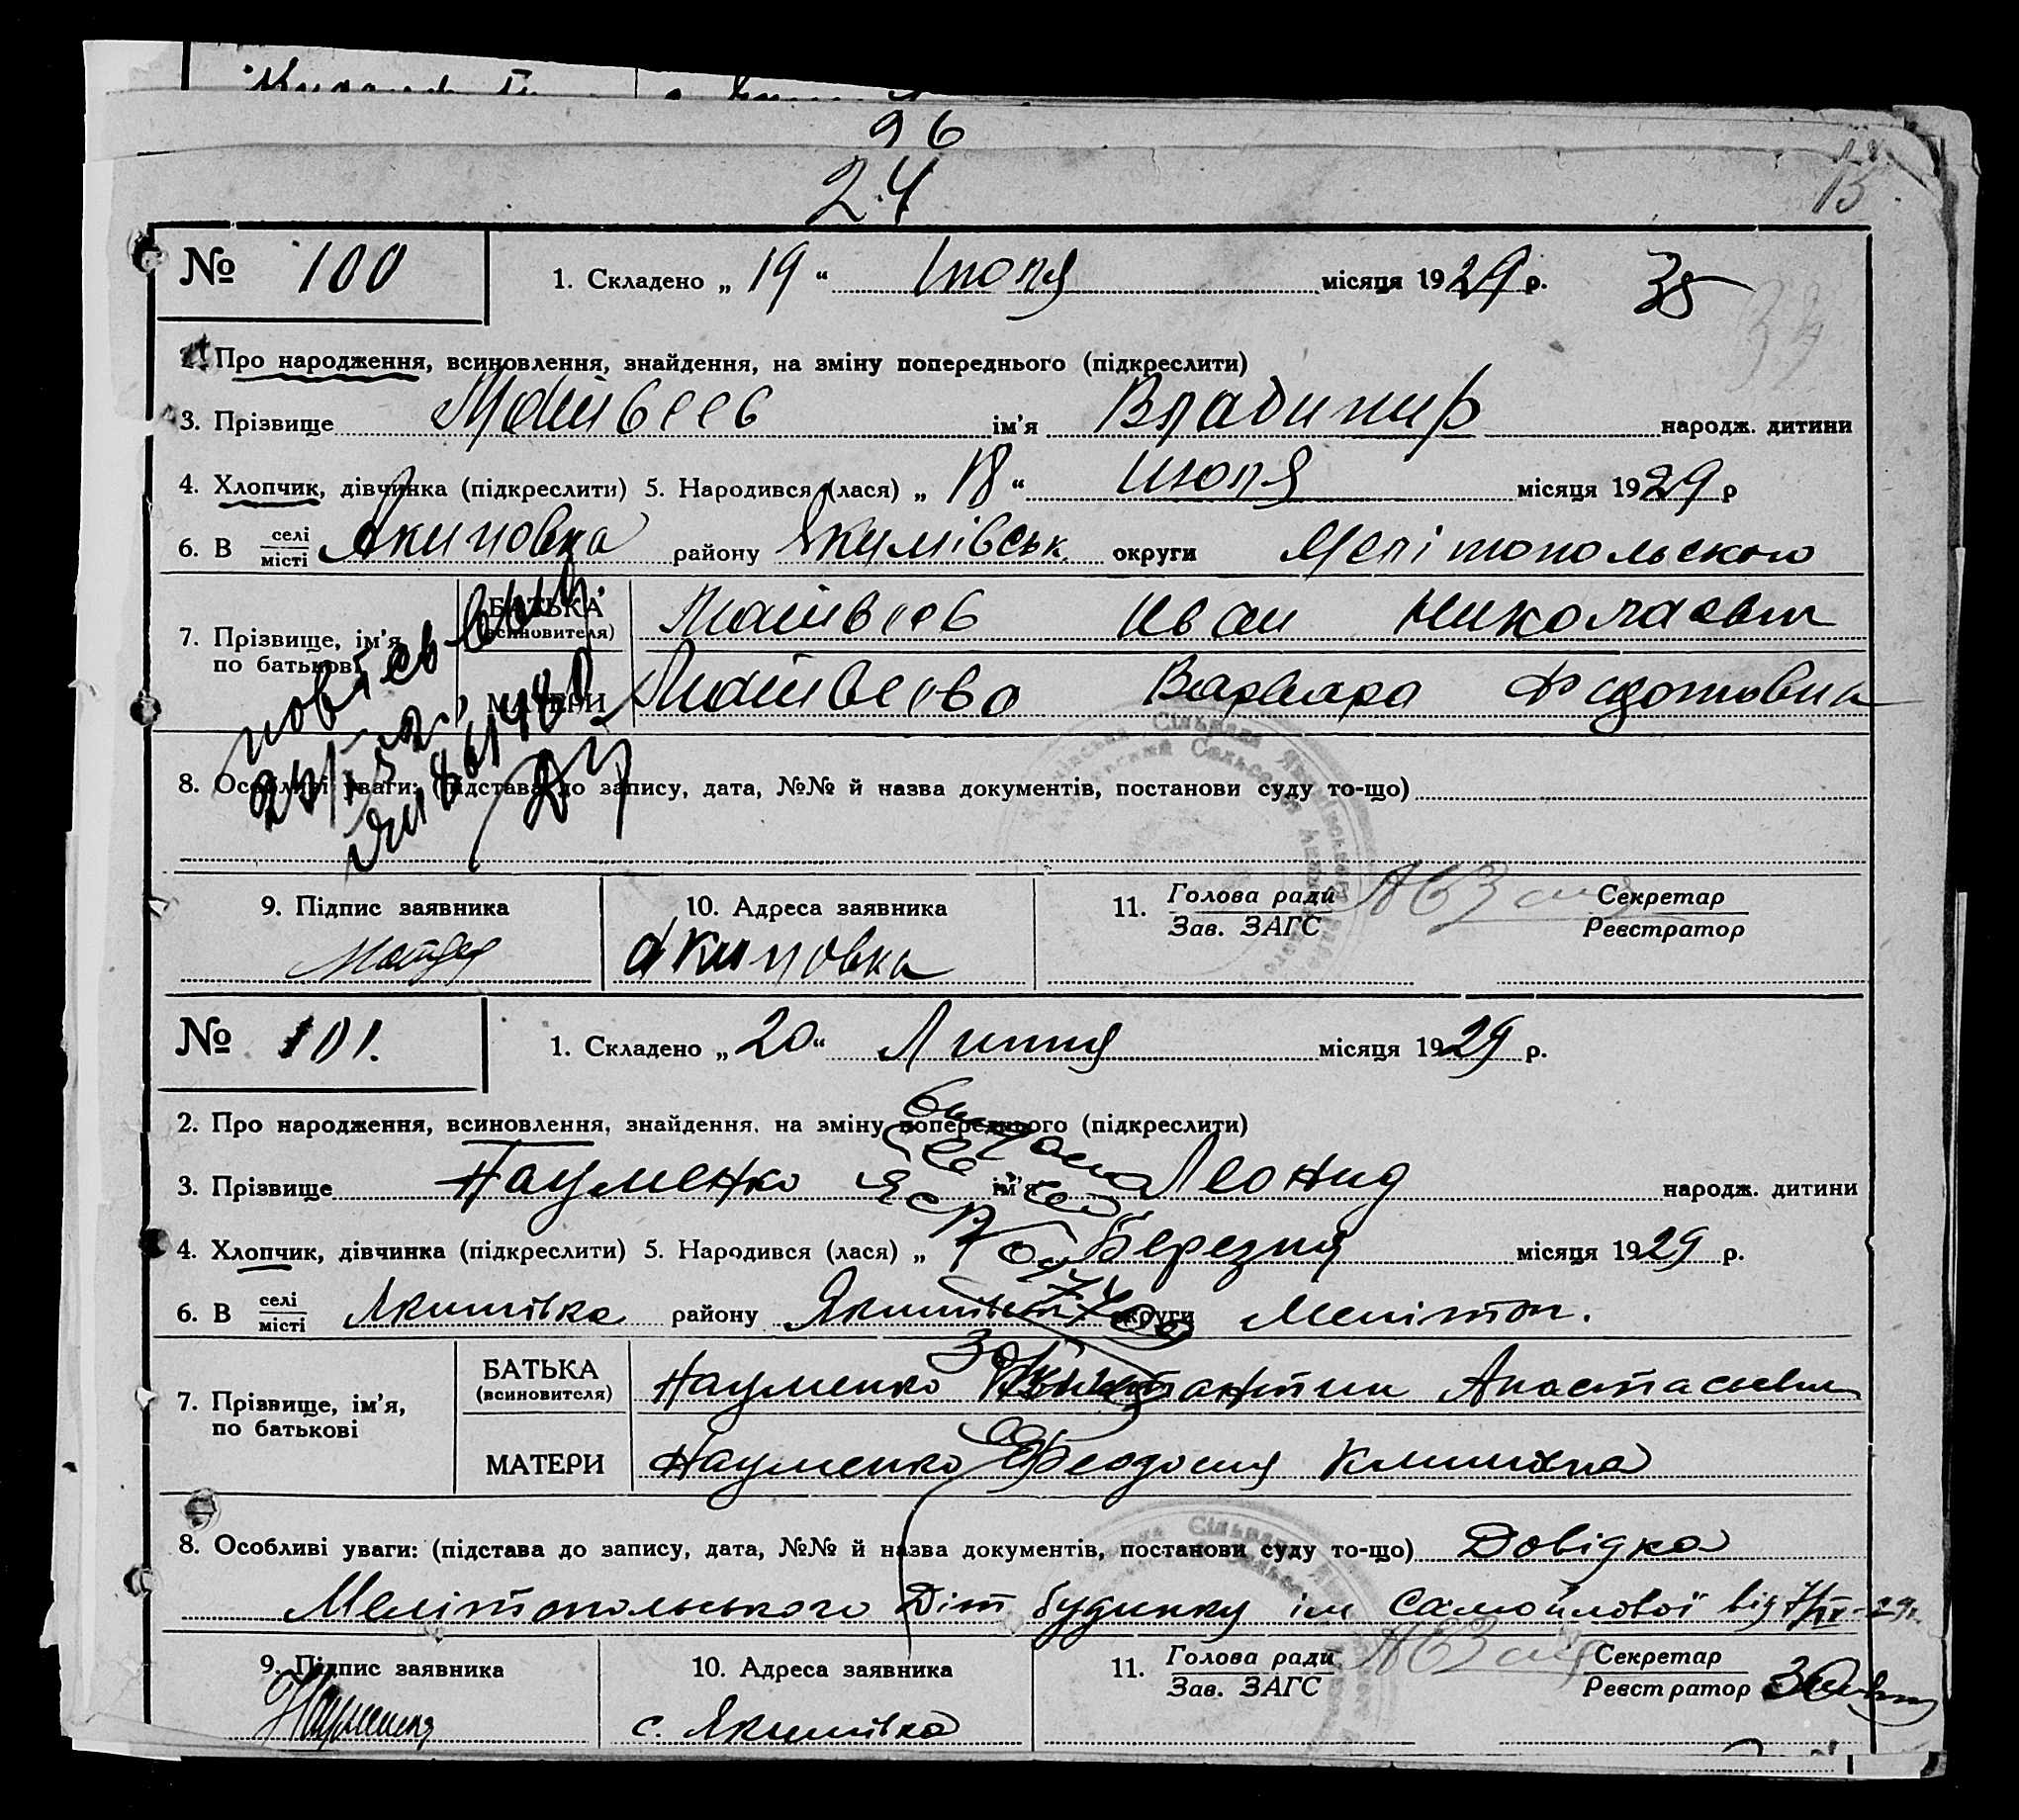 96
24
15
№ 100
1. Складено „ 19 “ Июля місяця 1929 р. 35
34
2. Про народження, всиновлення, знайдення, на зміну попереднього (підкреслити)
3. Прізвище Матвеев ім'я Владимир народж. дитини
4. Хлопчик, дівчинка (підкреслити) 5. Народився (лася) „ 18 “ Июля місяця 1929 р
6. В селі/місті Акимовка району Якимівськ округи Мелітопольского
7. Прізвище, ім'я, по батькові
БАТЬКА (всиновителя) Матвеев Иван Николаевич
МАТЕРИ Матвеева Варвара Федотовна
повт св выд.
8. Особливі уваги: (підстава до запису, дата, №№ й назва документів, постанови суду то-що)
9. Підпис заявника
10. Адреса заявника Акимовка
11. Голова ради / Зав. ЗАГС
Секретар / Реєстратор
№ 101.
1. Складено „ 20 “ Липня місяця 1929 р.
2. Про народження, всиновлення, знайдення, на зміну попереднього (підкреслити)
3. Прізвище Науменко ім'я Леонид народж. дитини
4. Хлопчик, дівчинка (підкреслити) 5. Народився (лася) „ Березня місяця 1929 р.
6. В селі/місті Якимівка району Якимівськ округи Мелітоп.
7. Прізвище, ім'я, по батькові
БАТЬКА (всиновителя) Науменко Константин Анастасьевич
МАТЕРИ Науменко Феодосия
8. Особливі уваги: (підстава до запису, дата, №№ й назва документів, постанови суду то-що) Довідка
Мелітопольського Діт будинку ім Самойлової від
9. Підпис заявника Науменко
10. Адреса заявника с. Якимівка
11. Голова ради / Зав. ЗАГС
Секретар / Реєстратор